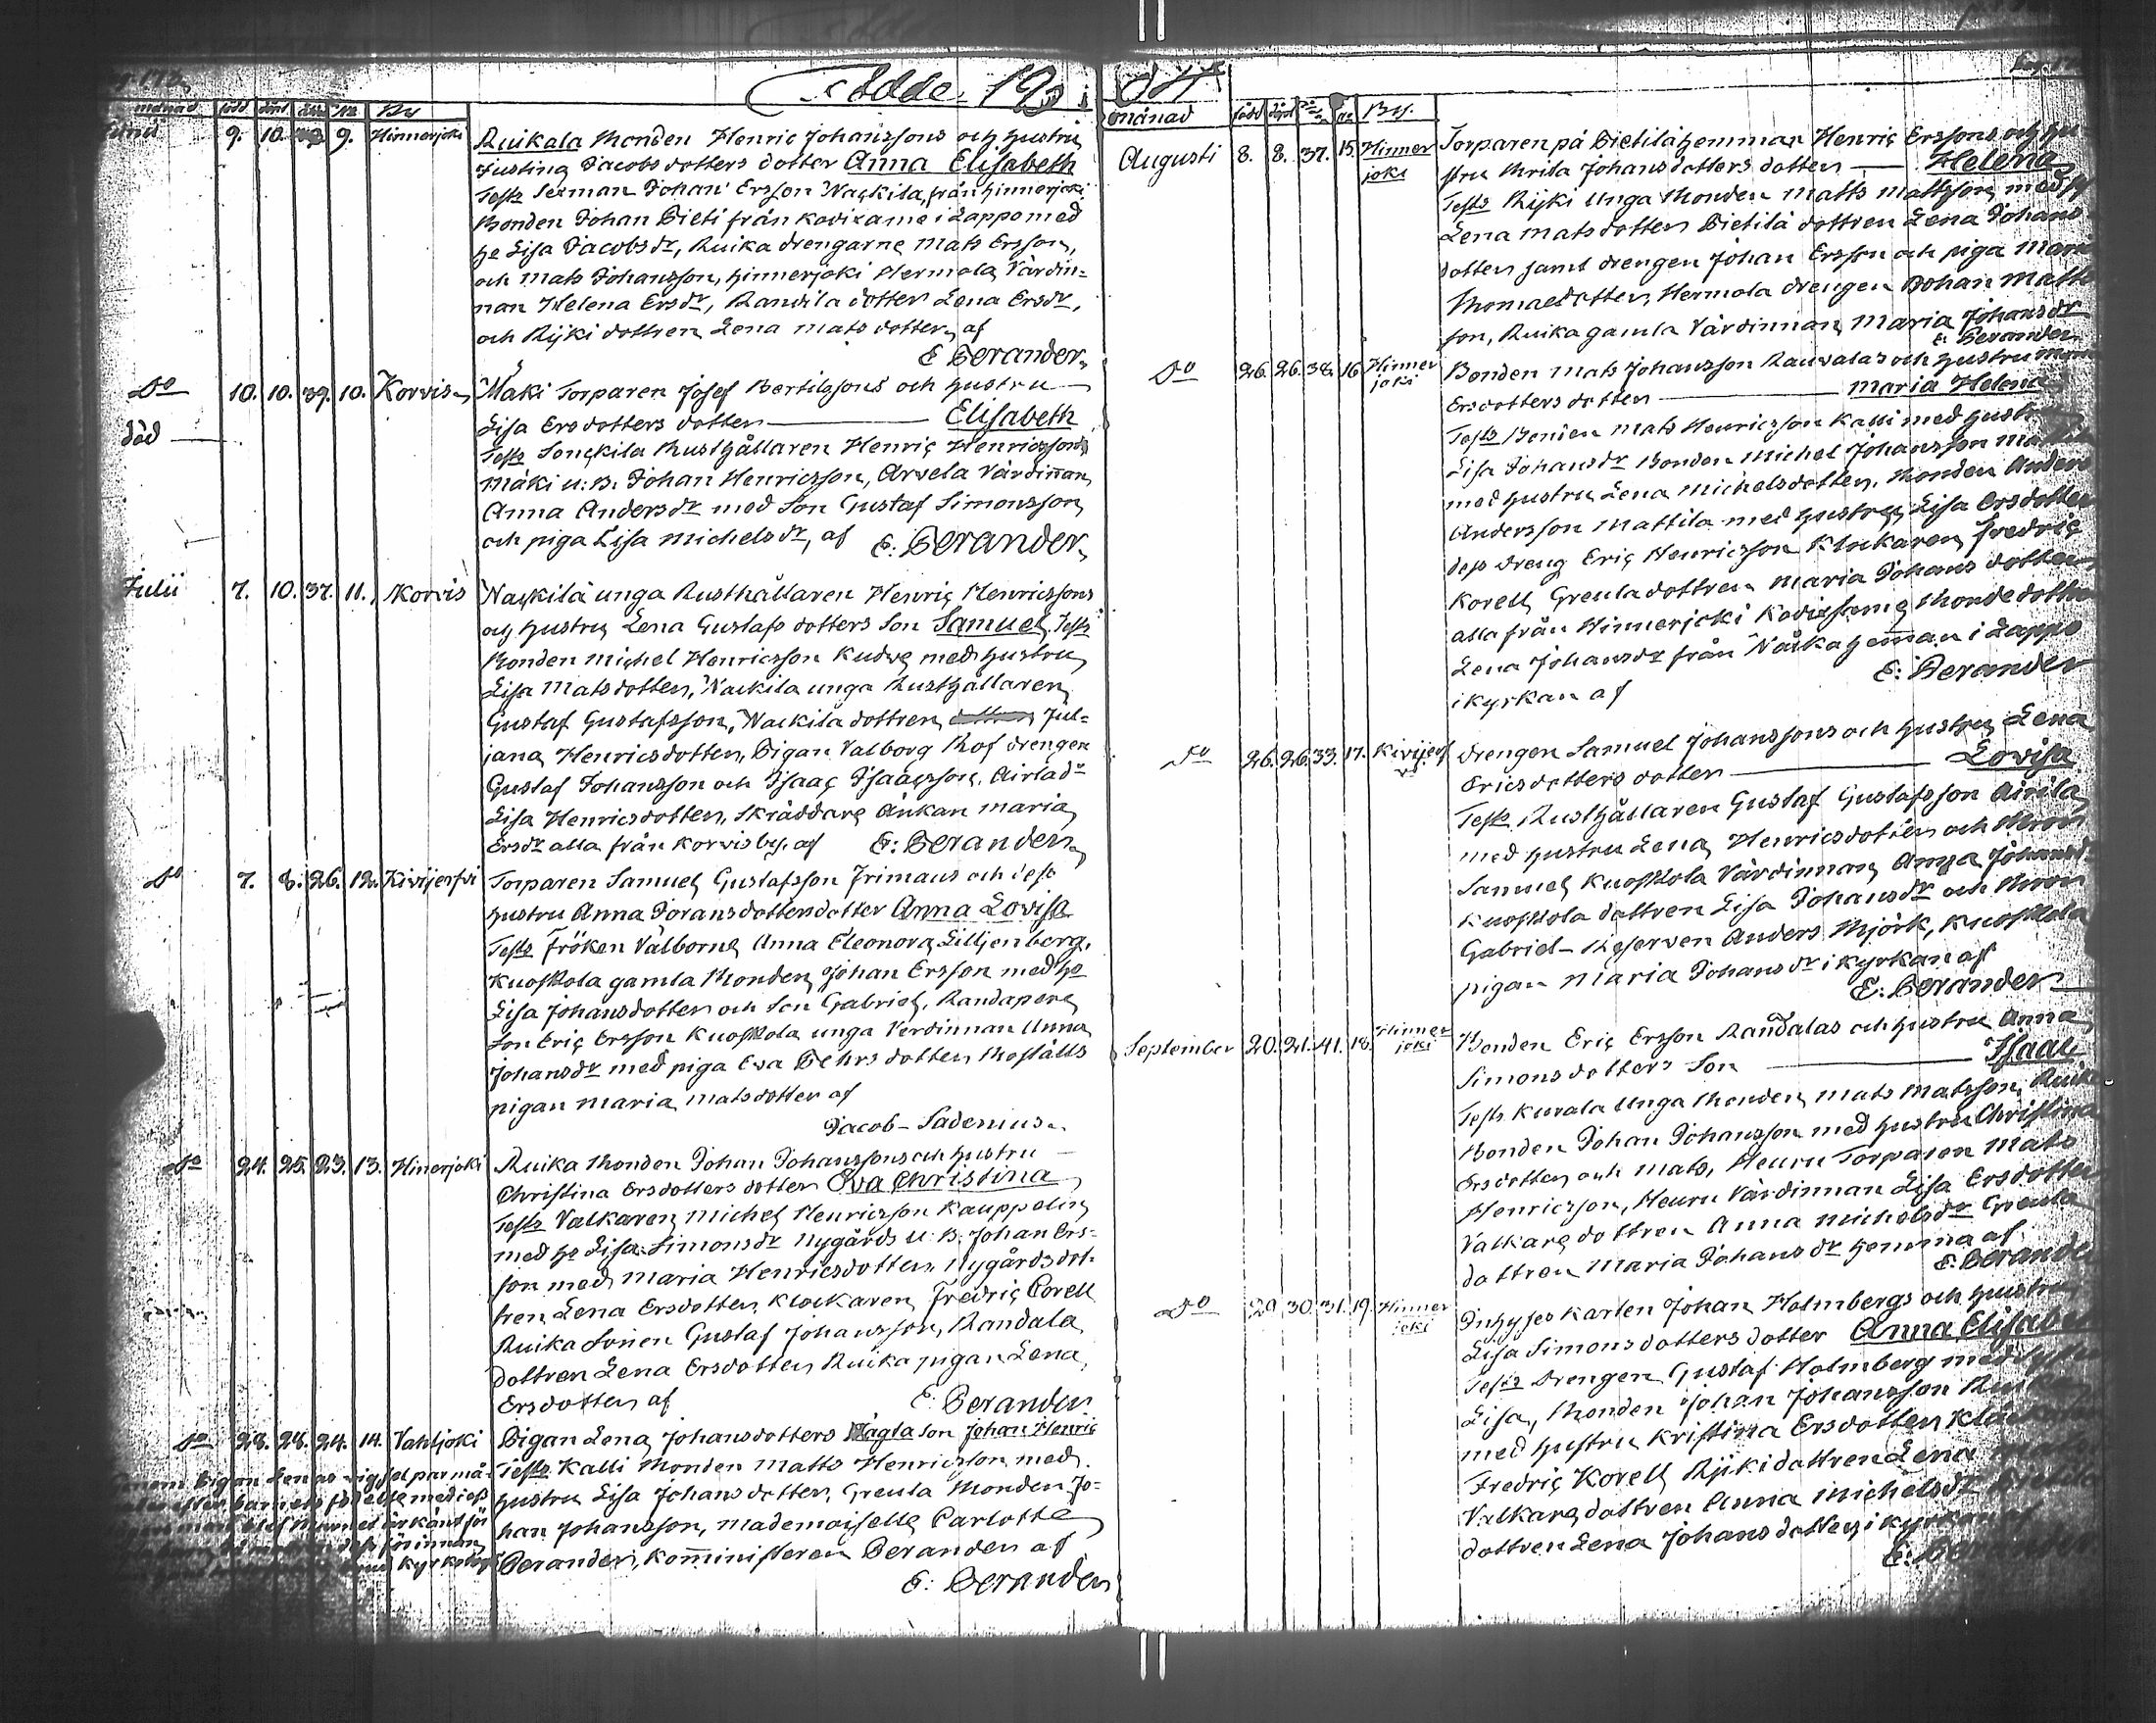 Födde 18
månad född döpt No By
9. 10. 9. Hinnerjoki
Ruikala Bonden Henric Johanssons och hustru
Justina Jacobsdotters dotter Anna Elisabeth
Tests Sexman Johan Ersson Nackila från Hinnerjoki
Bonden Johan Pieti från Kodixame i Lappo med
he Lisa Jacobsdr, Ruika drengarne Mats Ersson,
och Mats Johansson, Hinnerjoki Hermola Värdin=
nan Helena Ersdr, Randila dotter Lena Ersdr,
och Rijki dottren Lena Matsdotter, af
E Berander
Do 10. 10. 39. 10. Korvis
död
Mäki Torparen Josef Bertilssons och hustru
Lisa Ersdotters dotter Elisabeth
Tests Sonckila Rusthållaren Henric Henricsson
Mäki u: B. Johan Henricsson, Arvela Värdinnan
Anna Andersdr med Son Gustaf Simonsson
och piga Lisa Michelsdr, af E: Berander
Julii 7. 10. 37. 11. Korvis
Nackila unga Rusthållaren Henric Henricssons
och hustru Lena Gustafsdotters Son Samuel, Tests
Bonden Michel Henricsson Kudve med hustru
Lisa Matsdotter, Nackila unga Rusthållaren
Gustaf Gustafsson, Nackila dottren Jul=
jana Henricsdotter, Pigan Valborg Rof drengen
Gustaf Johansson och Isaac Isaacsson, Airladr
Lisa Henricsdotter, Skräddare Änkan Maria
Ersdr alla från Korvis by. af E: Berander
Do 7. 8. 26. 12. Kivijerfvi
Torparen Samuel Gustafsson Frimans och dess
hustru Anna Joransdotters dotter Anna Lovisa
Tests Fröken Välborne Anna Eleonora Lilljenberg,
Kuoskola gamla Bonden Johan Ersson med he
Lisa Johansdotter och Son Gabriel, Randapere
Son Eric Ersson Kuoskola unga Verdinnan Anna
Johansdr med piga Eva Pehrsdotter Boställs
pigan Maria Matsdotter af
Jacob Sadenius
Do 24. 25. 23. 13. Hinerjoki
Ruika Bonden Johan Johanssons och hustru
Christina Ersdotters dotter Eva Christina
Tests Valkaren Michel Henricsson Kauppelin
med he Lisa Simonsdr Nygårds u: B. Johan Ers=
son med Maria Henricsdotter, Nygårds dot-
tren Lena Ersdotter Klockaren Fredric Corell
Ruika Sonen Gustaf Johansson, Randala
dottren Lena Ersdotter Ruika pigan Lena
Ersdotter af E: Berander
Do 28. 28. 24. 14. Vahtjoki
Pigan Lena Johansdotters oägta son Johan Henric
Tests Kalli Bonden Matts Henricsson med
hustru Lisa Johansdotter, Greula Bonden Jo=
han Johansson, Mademoiselle Carlotte
Berander, Komministeren Berander af
E: Berander
04
månad född döpt By.
Augusti 8. 8. 37. 15. Hinner
joki
Torparen på Pietilä hemman Henric Erssons och hu
stru Brita Johansdotters dotter Helena
Tests Rijki unga Bonden Matts Mattsson med
Lena Matsdotter Pietilä dottren Lena Johans
dotter samt drengen Johan Ersson och piga Mari
Thomaedotter, Hermola drengen Johan Matts
son, Ruika gamla Värdinnan Maria Johansdr
E: Berander
Do 26. 26. 38. 16. Hinner
joki
Bonden Mats Johansson Rauvalas och hustru
Ersdotters dotter Maria Helena
Tests Bonden Mats Henricsson Kalli med hustru
Lisa Johansdr Bonden Michel Johansson
med hustru Lena Michelsdotter, Bonden Anders
Andersson Mattila med hustru Lisa Ersdotter
dess dreng Eric Henricsson Klockaren Fredric
Korell Greula dottren Maria Johansdotter
alla från Hinnerjoki Bondedotter
Lena Johansdr från Naska heman i Lappo
i kyrkan af E: Berander
Do 26. 26. 33. 17. Kivijerf
vi
drengen Samuel Johanssons och hustru Lena
Ericsdotters dotter Lovisa
Tests Rusthållaren Gustaf Gustafsson Airila
med hustru Lena Henricsdotter och
Samuel Kuoskola Värdinnan Anna Johansd
Kuoskola dottren Lisa Johansdr och
Gabriel Reserven Anders Björk, Kuoskola
pigan Maria Johansdr i kyrkan af
E: Berander
September 20. 21. 41. 18. Hinner
joki
Bonden Eric Ersson Randalas och hustru Anna
Simonsdotters Son Isaac
Tests Kuvala unga Bonden Mats Matsson, Ruika
Bonden Johan Johansson med hustru Christina
Ersdotter och Mats, Heuru Torparen Mats
Henricsson, Heuru Värdinnan Lisa Ersdotter
Valkare dottren Anna Michelsdr Greula
dottren Maria Johansdr hemma af
E. Berander
Do 29. 30. 31. 19. Hinner
joki
Inhyses karlen Johan Holmbergs och hustru
Lisa Simonsdotters dotter Anna Elisabe
Tests Drengen Gustaf Holmberg med
Lisa, Bonden Johan Johansson
med hustru Kristina Ersdotter
Fredric Korell Rijki dottren Lena
Valkare dottren Anna Michelsdr
dottren Lena Johansdotter i kyrkan